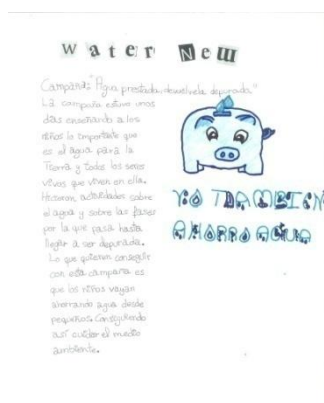 water New
Campaña: "Agua prestada, devuélvela depurada."
La campaña estuvo unos
días enseñando a los
niños lo importante que
es el agua para la
Tierra y todos los seres
vivos que viven en ella.
Hicieron actividades sobre
el agua y sobre las fases
por la que pasa hasta
llegar a ser depurada.
Lo que quieren conseguir
con esta campaña es
que los niños vayan
ahorrando agua desde
pequeños. Consiguiendo
así cuidar el medio
ambiente.
YO TAMBIÉN
AHORRO AGUA